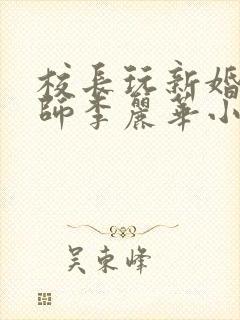 校長玩新婚
師李麗華小
吴東峰